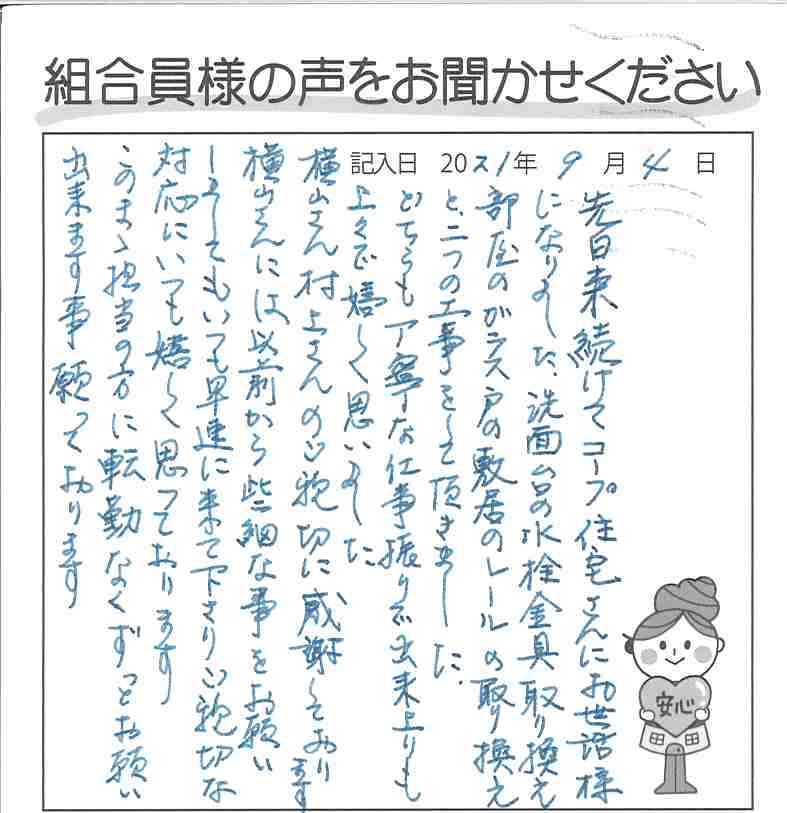 組合員様の声をお聞かせください
記入日 2021年 9月 4日
先日来続けてコープ住宅さんにお世話様
になりました、洗面台の水栓金具取り換え
部屋のガラス戸の敷居のレールの取り換え
と、二つの工事をして頂きました、
どちらも丁寧な仕事振りで出来上りも
上々で嬉しく思いました
横山さん村上さんの御親切に感謝しております
横山さんには以前から些細な事をお願い
しましてもいつも早速に来て下さり御親切な
対応にいつも嬉しく思っております
このまゝ担当の方に転勤なくずっとお願い
出来ます事願っております
安心